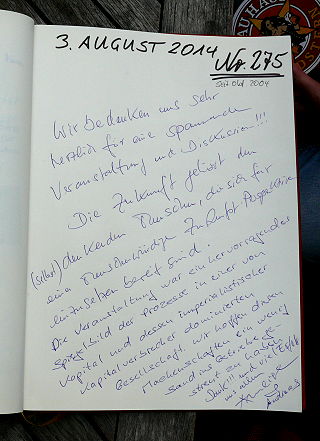 BRAUHAUS
3. AUGUST 2014
Nr. 275
seit Okt 2004
Wir bedanken uns sehr
herzlich für eine spannende
Veranstaltung und Diskussion!!!
Die Zukunft gehört den
(selbst) denkenden Menschen, die sich für
eine Menschenwürdige Zukunft Perspektive
einzusetzen bereit sind.
Die Veranstaltung war ein hervorragendes
Spiegelbild der Prozesse in einer von
Kapital und dessen imperialistischer
Kapitalverbrecher dominierten
Gesellschaft. Wir hoffen diesen
Machenschaften ein wenig
Sand ins Getriebe ge-
streut zu haben.
Dank!!! und viel
Andreas